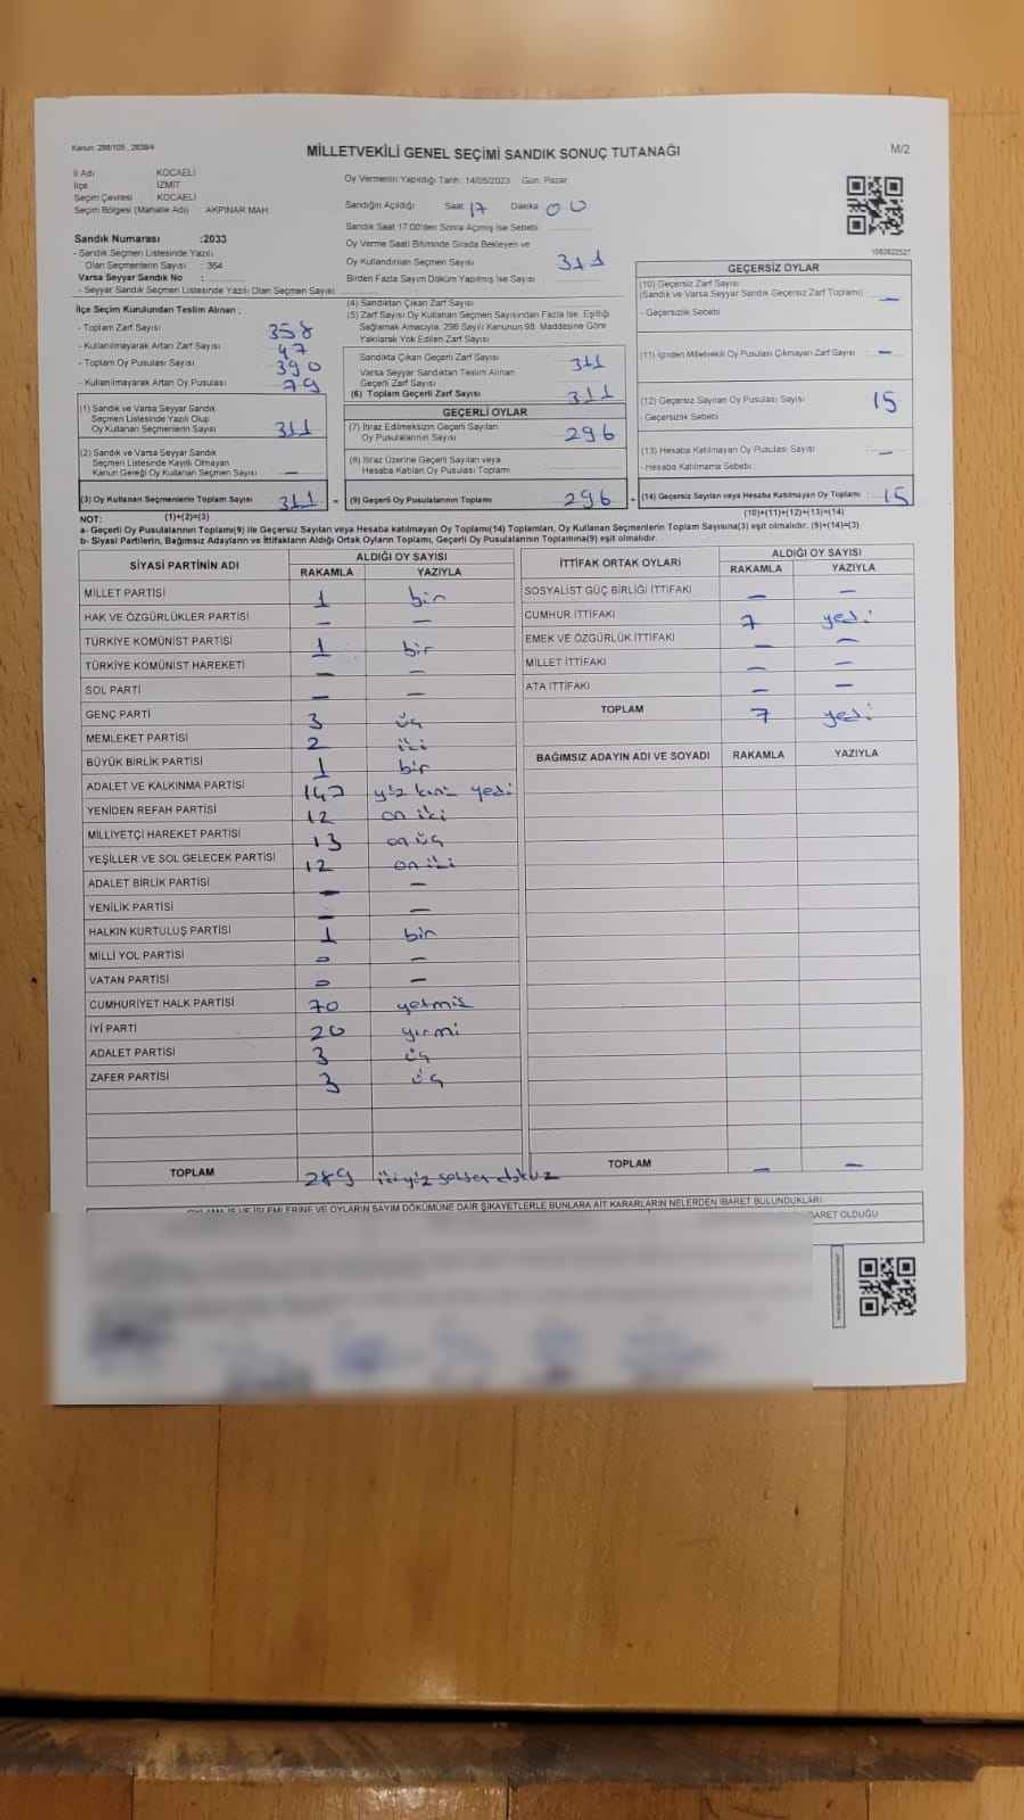 Kanun: 298/105 , 2839/4
MİLLETVEKİLİ GENEL SEÇİMİ SANDIK SONUÇ TUTANAĞI
M/2
İl Adı KOCAELİ
İlçe İZMİT
Seçim Çevresi KOCAELİ
Seçim Bölgesi (Mahalle Adı) AKPINAR MAH.
Sandık Numarası :2033
- Sandık Seçmen Listesinde Yazılı
Olan Seçmenlerin Sayısı : 364
Varsa Seyyar Sandık No :
- Seyyar Sandık Seçmen Listesinde Yazılı Olan Seçmen Sayısı
İlçe Seçim Kurulundan Teslim Alınan :
- Toplam Zarf Sayısı 358
- Kullanılmayarak Artan Zarf Sayısı 47
- Toplam Oy Pusulası Sayısı 390
- Kullanılmayarak Artan Oy Pusulası 79
(1) Sandık ve Varsa Seyyar Sandık
Seçmen Listesinde Yazılı Olup
Oy Kullanan Seçmenlerin Sayısı 311
(2) Sandık ve Varsa Seyyar Sandık
Seçmen Listesinde Kayıtlı Olmayan
Kanun Gereği Oy Kullanan Seçmen Sayısı —
(3) Oy Kullanan Seçmenlerin Toplam Sayısı 311
(1)+(2)=(3)
Oy Vermenin Yapıldığı Tarih: 14/05/2023 Gün: Pazar
Sandığın Açıldığı Saat 17 Dakika 00
Sandık Saat 17.00'den Sonra Açılmış İse Sebebi
Oy Verme Saati Bitiminde Sırada Bekleyen ve
Oy Kullandırılan Seçmen Sayısı 311
Birden Fazla Sayım Döküm Yapılmış İse Sayısı
(4) Sandıktan Çıkan Zarf Sayısı
(5) Zarf Sayısı Oy Kullanan Seçmen Sayısından Fazla İse, Eşitliği
Sağlamak Amacıyla, 298 Sayılı Kanunun 98. Maddesine Göre
Yakılarak Yok Edilen Zarf Sayısı
Sandıkta Çıkan Geçerli Zarf Sayısı 311
Varsa Seyyar Sandıktan Teslim Alınan
Geçerli Zarf Sayısı
(6) Toplam Geçerli Zarf Sayısı 311
GEÇERLİ OYLAR
(7) İtiraz Edilmeksizin Geçerli Sayılan
Oy Pusulalarının Sayısı 296
(8) İtiraz Üzerine Geçerli Sayılan veya
Hesaba Katılan Oy Pusulası Toplamı
(9) Geçerli Oy Pusulalarının Toplamı 296
1082822521
GEÇERSİZ OYLAR
(10) Geçersiz Zarf Sayısı
(Sandık ve Varsa Seyyar Sandık Geçersiz Zarf Toplamı) —
- Geçersizlik Sebebi
(11) İçinden Milletvekili Oy Pusulası Çıkmayan Zarf Sayısı —
(12) Geçersiz Sayılan Oy Pusulası Sayısı 15
- Geçersizlik Sebebi
(13) Hesaba Katılmayan Oy Pusulası Sayısı —
- Hesaba Katılmama Sebebi
(14) Geçersiz Sayılan veya Hesaba Katılmayan Oy Toplamı 15
(10)+(11)+(12)+(13)=(14)
NOT:
a- Geçerli Oy Pusulalarının Toplamı(9) ile Geçersiz Sayılan veya Hesaba katılmayan Oy Toplamı(14) Toplamları, Oy Kullanan Seçmenlerin Toplam Sayısına(3) eşit olmalıdır. (9)+(14)=(3)
b- Siyasi Partilerin, Bağımsız Adayların ve İttifakların Aldığı Ortak Oyların Toplamı, Geçerli Oy Pusulalarının Toplamına(9) eşit olmalıdır.
SİYASİ PARTİNİN ADI ALDIĞI OY SAYISI
RAKAMLA YAZIYLA
MİLLET PARTİSİ 1 bir
HAK VE ÖZGÜRLÜKLER PARTİSİ — —
TÜRKİYE KOMÜNİST PARTİSİ 1 bir
TÜRKİYE KOMÜNİST HAREKETİ — —
SOL PARTİ — —
GENÇ PARTİ 3 üç
MEMLEKET PARTİSİ 2 iki
BÜYÜK BİRLİK PARTİSİ 1 bir
ADALET VE KALKINMA PARTİSİ 147 yüz kırk yedi
YENİDEN REFAH PARTİSİ 12 on iki
MİLLİYETÇİ HAREKET PARTİSİ 13 on üç
YEŞİLLER VE SOL GELECEK PARTİSİ 12 on iki
ADALET BİRLİK PARTİSİ — —
YENİLİK PARTİSİ — —
HALKIN KURTULUŞ PARTİSİ 1 bir
MİLLİ YOL PARTİSİ 0 —
VATAN PARTİSİ 0 —
CUMHURİYET HALK PARTİSİ 70 yetmiş
İYİ PARTİ 20 yirmi
ADALET PARTİSİ 3 üç
ZAFER PARTİSİ 3 üç
TOPLAM 289 ikiyüz seksen dokuz
İTTİFAK ORTAK OYLARI ALDIĞI OY SAYISI
RAKAMLA YAZIYLA
SOSYALİST GÜÇ BİRLİĞİ İTTİFAKI — —
CUMHUR İTTİFAKI 7 yedi
EMEK VE ÖZGÜRLÜK İTTİFAKI — —
MİLLET İTTİFAKI — —
ATA İTTİFAKI — —
TOPLAM 7 yedi
BAĞIMSIZ ADAYIN ADI VE SOYADI RAKAMLA YAZIYLA
TOPLAM — —
OYLAMA İŞ VE İŞLEMLERİNE VE OYLARIN SAYIM DÖKÜMÜNE DAİR ŞİKAYETLERLE BUNLARA AİT KARARLARIN NELERDEN İBARET BULUNDUKLARI
İBARET OLDUĞU